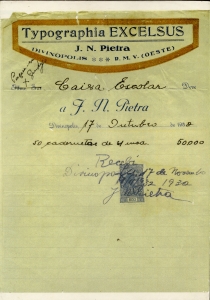 Typographia EXCELSUS
J. N. Pietra
DIVINOPOLIS *** R. M. V. (OESTE)
Caixa Escolar
a J. N. Pietra
Divinopolis, 17 de Outubro de 19
50 cadernetas de 50000
Recebi
Divinopolis 17 de Novembro
1930
J Pietra